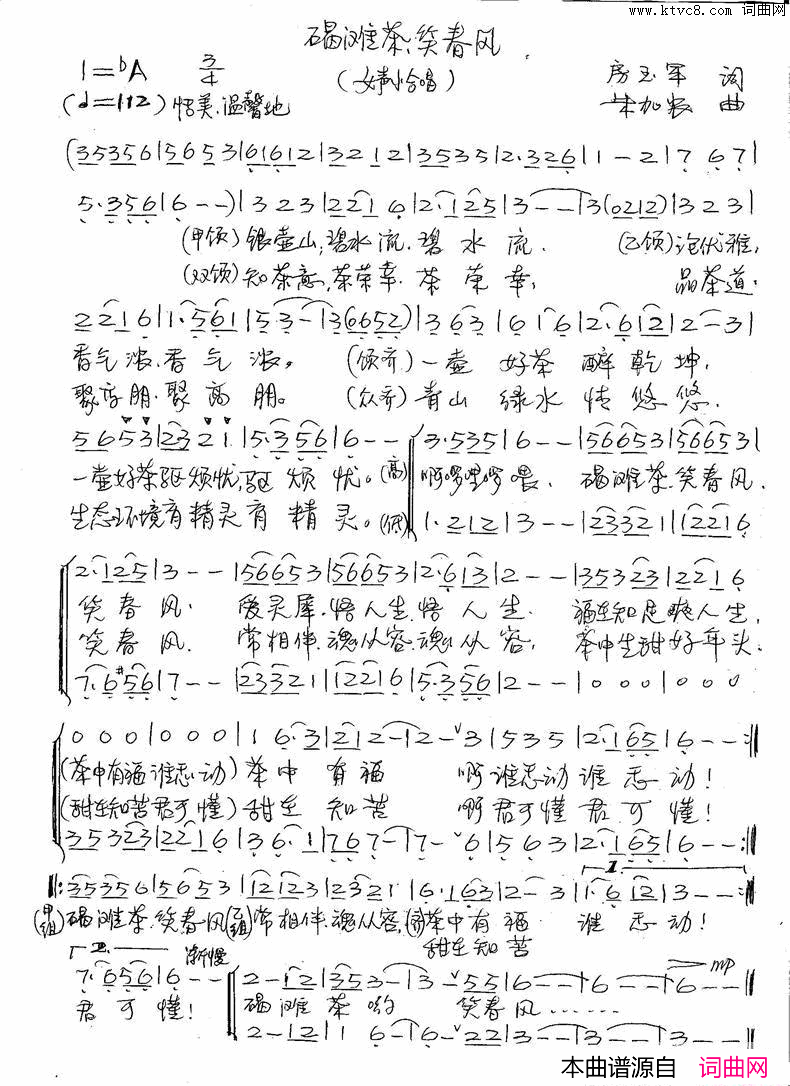 www.ktvc8.com 词曲网
碣滩茶,笑春风
(女声小合唱)
1=bA 3/4
房玉军 词
(♩=112) 恬美、温馨地
加农 曲
(35356|56053|61612|3212|35335|2·326|1-2|767|
5·356|6--)|323|2216|2·125|3--|3(0212)|323|
(甲领)银壶山,碧水流,碧水流. (乙领)泡优雅,
(双领)知茶意,茶荣幸,茶荣幸, 品茶道,
2216|1·561|5·3-|3(0652)|363|616|2·612|2-3|
香气浓,香气浓。(领齐)一壶好茶醉乾坤,
聚高朋,聚高朋。(众齐)青山绿水情悠悠,
5653|2321|5·356|6--|3·535|6--|566053|566053|
一壶好茶驱烦忧,驱烦忧。(高)啊啰哩啰喂、碣滩茶,笑春风,
生态环境育精灵育精灵。(低)1·212|3--|23321|12216
2·125|3--|566053|566053|2·613|2--|35323|2216
笑春风. 爱灵犀,悟人生,悟人生. 福在知足爽人生,
笑春风. 常相伴,魂从容,魂从容, 茶中生甜好年头.
7·6#56|7--|23321|12216|5·356|2--|000|000
000|000|16·3|212-|2-3|535|2·165|6--:||
(茶中有福谁忘动)茶中有福 啊谁忘动谁忘动!
(甜在知苦君可懂)甜在知苦 啊君可懂君可懂!
35323|2216|36·1|767-|7-6|563|2·165|6--:||
1.
||:35356|5653|12123|2321|6·163|2-3|1·612|3--:||
(甲组)碣滩茶,笑春风(乙组)常相伴,魂从容,(齐)茶中有福 谁忘动!
甜在知苦
2. 渐慢 mp
7·656|6--|2-12|353-|3-55|6--|6--|6--||
君可懂! 碣滩茶哟 笑春风……
2-12|16-|6-22|3--|3--|3--||
本曲谱源自 词曲网